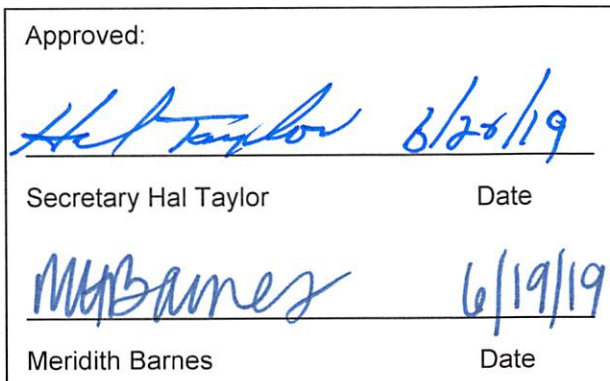 Approved:
Hal Taylor
Secretary Hal Taylor Date
MHBarnes 6/19/19
Meridith Barnes Date